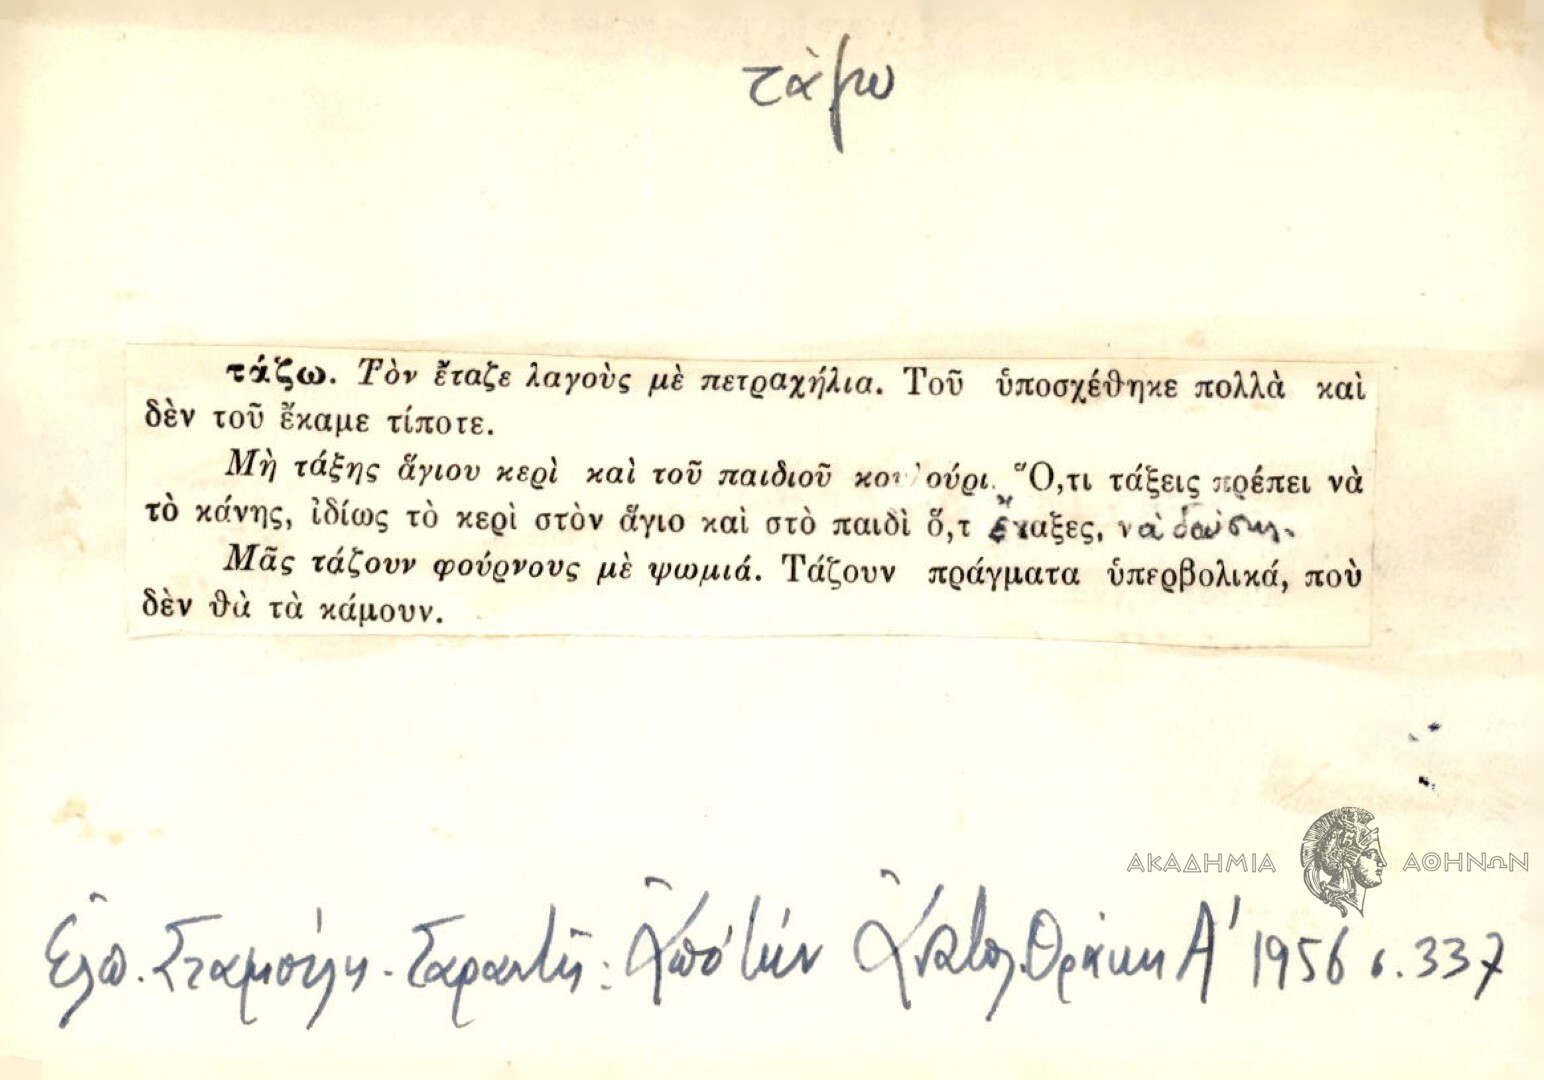 τάζω
τάζω. Τὸν ἔταζε λαγοὺς μὲ πετραχήλια. Τοῦ ὑποσχέθηκε πολλὰ καὶ
δὲν τοῦ ἔκαμε τίποτε.
Μὴ τάξῃς ἅγιου κερὶ καὶ τοῦ παιδιοῦ κουλούρι. Ὅ,τι τάξεις πρέπει νὰ
τὸ κάνῃς, ἰδίως τὸ κερὶ στὸν ἅγιο καὶ στὸ παιδὶ ὅ,τ ἔταξες, νὰ δώσῃς.
Μᾶς τάζουν φούρνους μὲ ψωμιά. Τάζουν πράγματα ὑπερβολικά, ποὺ
δὲν θὰ τὰ κάμουν.
ΑΚΑΔΗΜΙΑ ΑΘΗΝΩΝ
Ἐλπ. Σταμούλη - Σαραντῆ: Ἀπὸ τὴν Ἀνατολ. Θράκη Α' 1956 σ. 337